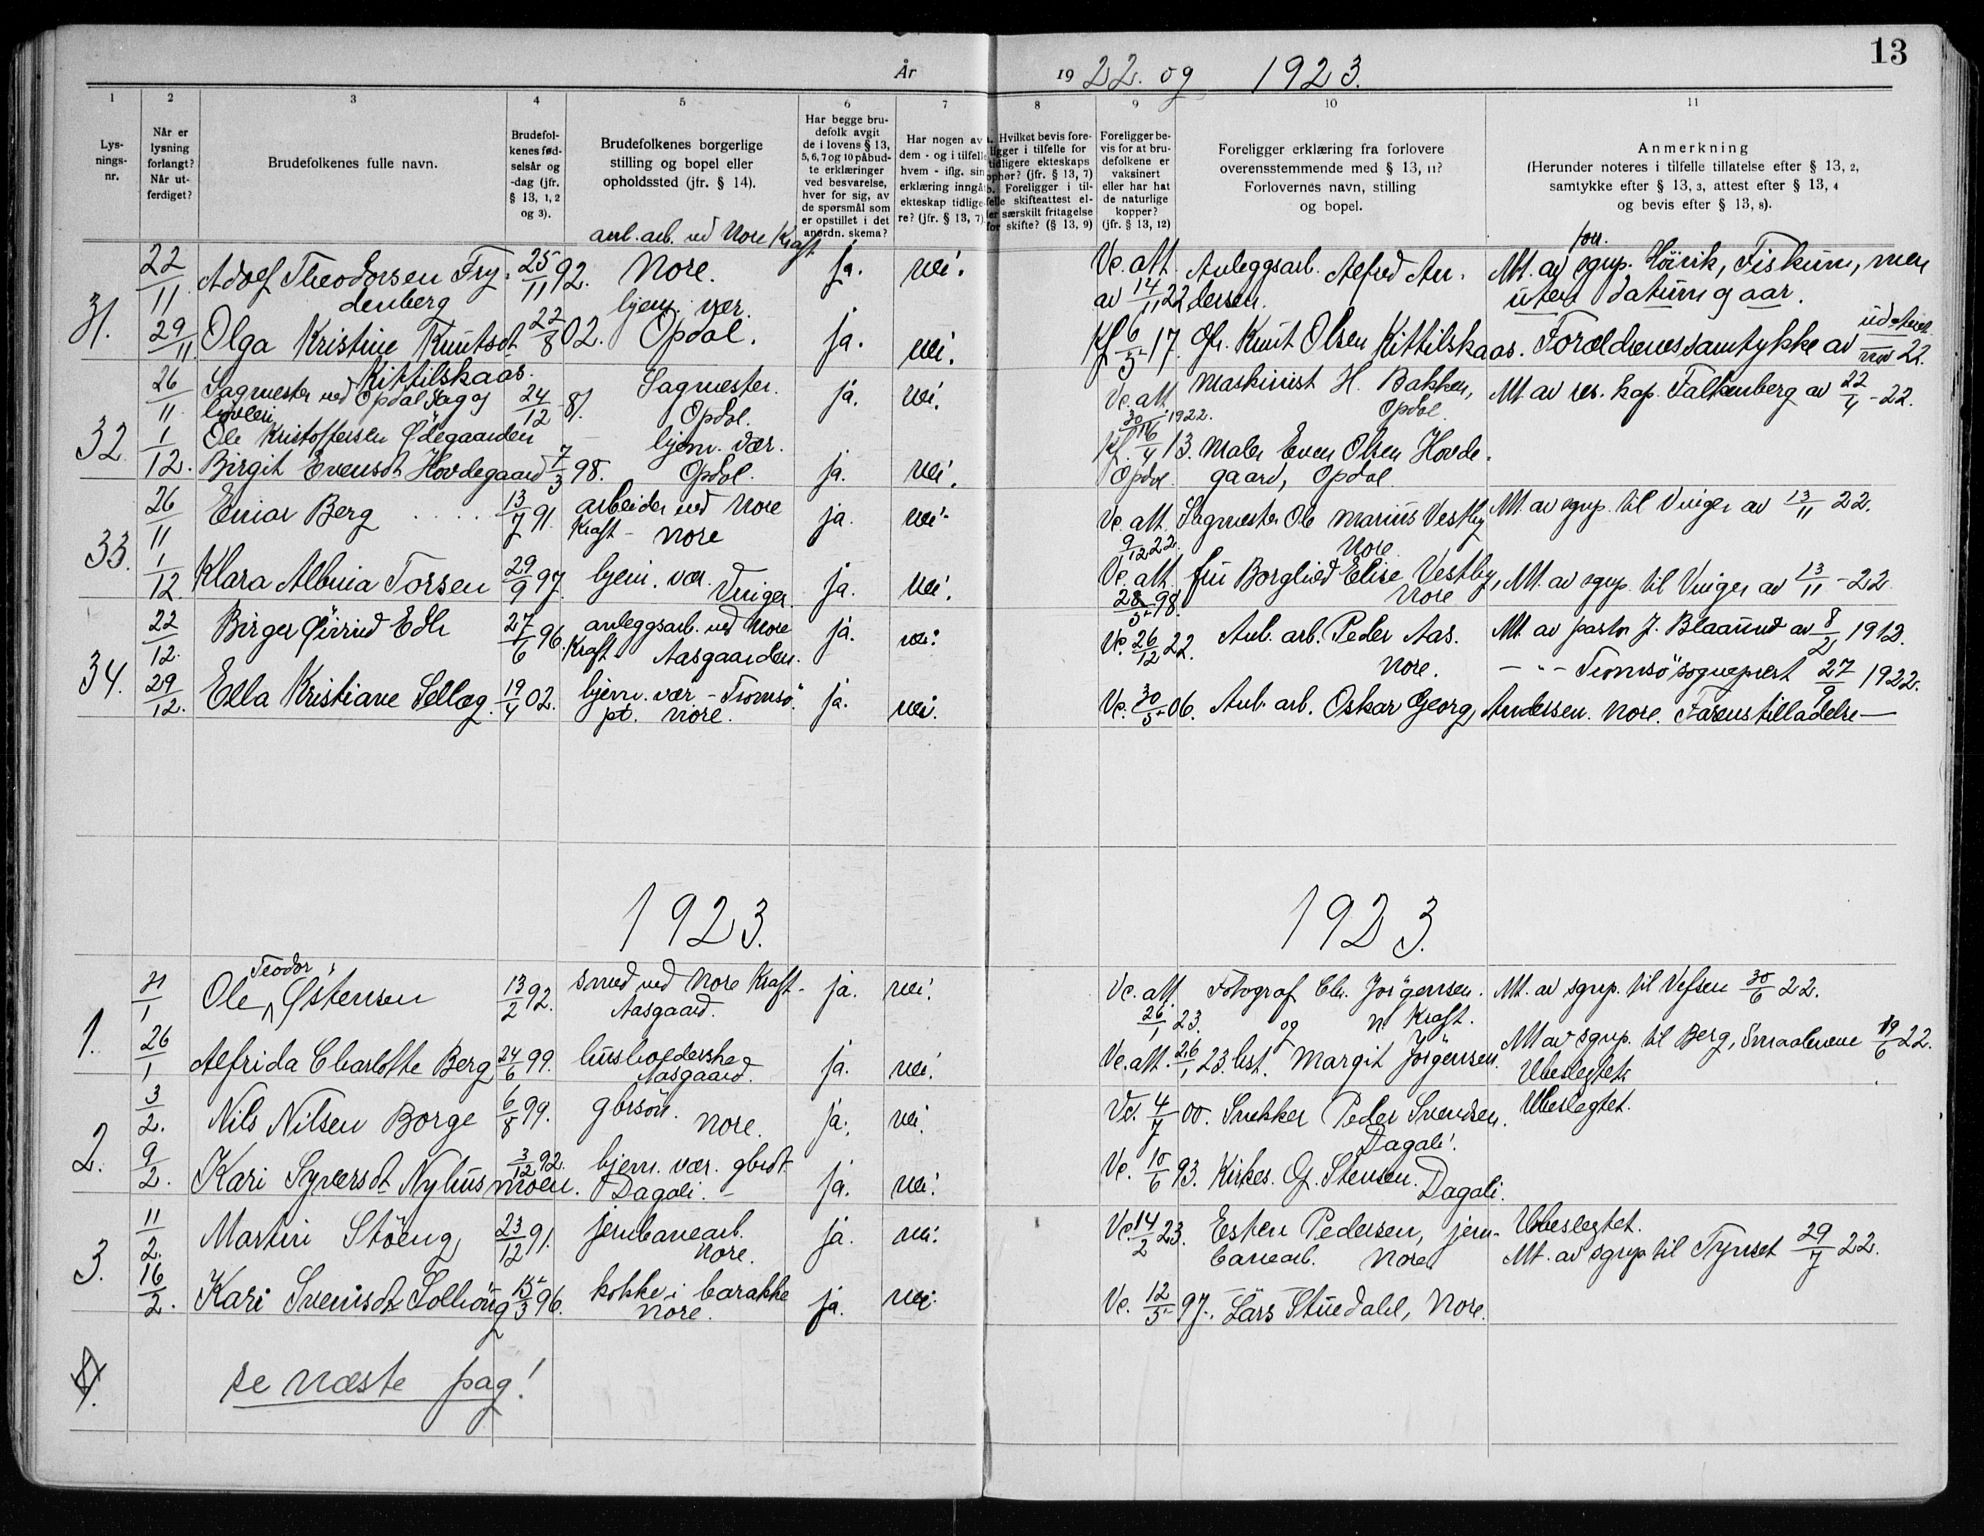 13
År 1922. og 1923.
1 2 3 4 5 6 7 8 9 10 11
Lysningsnr.
Når er lysning forlangt? Når utferdiget?
Brudefolkenes fulle navn.
Brudefolkenes fødselsår og -dag (jfr. § 13, 1, 2 og 3).
Brudefolkenes borgerlige stilling og bopel eller opholdssted (jfr. § 14).
Har begge brudefolk avgit de i lovens § 13, 5, 6, 7 og 10 påbudte erklæringer ved besvarelse, hver for sig, av de spørsmål som er opstillet i det anordn. skema?
Har nogen av dem - og i tilfelle hvem - iflg. sin erklæring inngåt ekteskap tidligere? (jfr. § 13, 7)
Hvilket bevis foreligger i tilfelle for tidligere ekteskaps ophør? (jfr. § 13, 7)
Foreligger i tilfelle skifteattest eller særskilt fritagelse for skifte? (§ 13, 9)
Foreligger bevis for at brudefolkene er vaksinert eller har hat de naturlige kopper? (jfr. § 13, 12)
Foreligger erklæring fra forlovere overensstemmende med § 13, 11? Forlovernes navn, stilling og bopel.
Anmerkning
(Herunder noteres i tilfelle tillatelse efter § 13, 2, samtykke efter § 13, 3, attest efter § 13, 4 og bevis efter § 13, 8).
anl. arb. ved Nore Kraft
31. 22/11 Adolf Theodorsen Frydenberg 25/11 92. Nore. ja. nei. Vc. att. av 14/11 22 Anleggsarb. Alfred Andersen. Att. av sgnp. Fiskum, men uten datum og aar.
29/11 Olga Kristine Knutsdt. Kittilskaas. 22/8 02. hjem. vær. Opdal. ja. nei. Kf 6/5 17. Gbr. Knut Olsen Kittilskaas. Forældrenes samtykke av 22.
32 26/11 Sagmester ved Opdal Sag og Ole Kristoffersen Ødegaarden 24/12 87. Sagmester Opdal. ja. nei. Vc. att. 30/11 1922. Maskinist H. Bakken, Opdal. Att. av res. kap. Falkenberg av 22/4 - 22.
1/12. Birgit Evensdt. Hovdegaard 7/3 98. hjem. vær. Opdal. ja. nei. Kf. 16/4 13. Opdal Maler Even Olsen Hovdegaard, Opdal
33. 26/11 Einar Berg 13/7 91. arbeider ved Nore Kraft - Nore ja. nei. Vc. att. 9/12 22. Sagmester Ole Marius Vestby Nore. Att. av sgnp. til Vinger av 13/11 22.
1/12 Klara Albinia Torsen 29/9 97. hjem. vær. Vinger. ja. nei. Vc. att. 28/5 98. fru Borghild Elise Vestby, Nore Att. av sgnp. til Vinger av 13/11 - 22
34. 22/12. Birger Øivind Edh 27/6 96. anleggsarb. ved Nore Kraft - Aasgaarden. ja. nei. Vc. 26/12 22. Anl. arb. Peder Aas. Nore. Att. av pastor J. Blaaund av 8/2 1912.
29/12. Ella Kristiane Sellæg. 19/4 02. hjem. vær - Tromsö. pt. Nore. ja. nei. Vc. 30/5 06. Anl. arb. Oskar Georg Andersen. Nore. — " — Tromsö sogneprest 27/9 1922. Farens tilladelse —
1923. 1923.
1. 21/1 Ole Teodor Østensen 13/2 92. smed ved Nore Kraft - Aasgaard. ja. nei. Vc. att. 26/1 23. Fotograf Chr. Jörgensen. N. Kraft. og Att. av sgnp. til Vefsen 30/6 22.
26/1 Alfrida Charlotte Berg 24/6 99. husholderske Aasgaard. ja. nei. Vc. att. 26/1 23. hst. Margit Jörgensen. Att av sgnp. til Berg, Smaalenene 19/6 22. Ubeslegtet.
2. 3/2. Nils Nilsen Borge 6/8 99. gbrsön. Nore. ja. nei. Vc. 4/7 00. Snekker Peder Svendsen. Dagali. Ubeslegtet.
9/2. Kari Syversdt. Nyhusmoen. 3/12 92. hjem. vær. gbrdt. Dagali. - ja. nei. Vc. 10/6 93. Kirkes. G. Stensen. Dagali.
3. 11/2. Martin Stöeng 23/12 91. jernbanearb. Nore. ja. nei. Vc. 14/2 23. Esten Pedersen, jernbanearb. Nore Ubeslegtet. Att. av sgnp. til Tynset 29/7 22.
16/2. Kari Svensdt. Solhöug 15/3 96. kokke i barakke Nore. ja. nei. Vc. 12/5 97. Lars Stuedahl, Nore.
4. se næste pag!